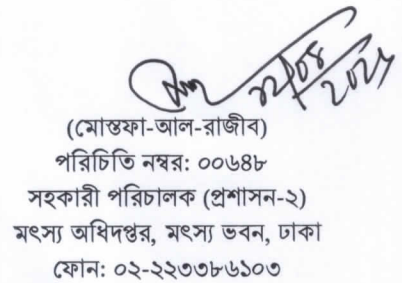 ২২/০৪
২০২৫
(মোস্তফা-আল-রাজীব)
পরিচিতি নম্বর: ০০৬৪৮
সহকারী পরিচালক (প্রশাসন-২)
মৎস্য অধিদপ্তর, মৎস্য ভবন, ঢাকা
ফোন: ০২-২২৩৩৮৬১০৩